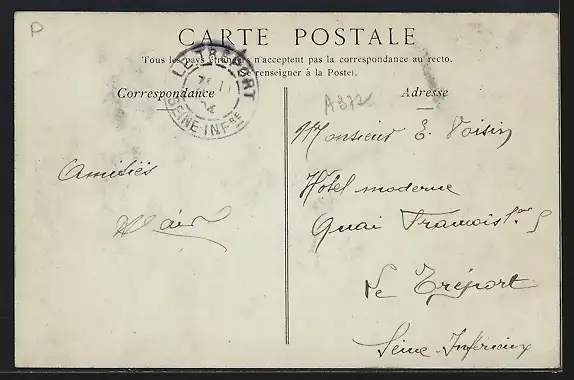 P
CARTE POSTALE
Tous les pays étrangers n'acceptent pas la correspondance au recto.
se renseigner à la Poste).
LE TREPORT
04
SEINE-INFRE
Correspondance
Amitiés
A372
Adresse
Monsieur E. Voisin
Hôtel moderne
Quai François 1er 5
Le Tréport
Seine-Inférieure